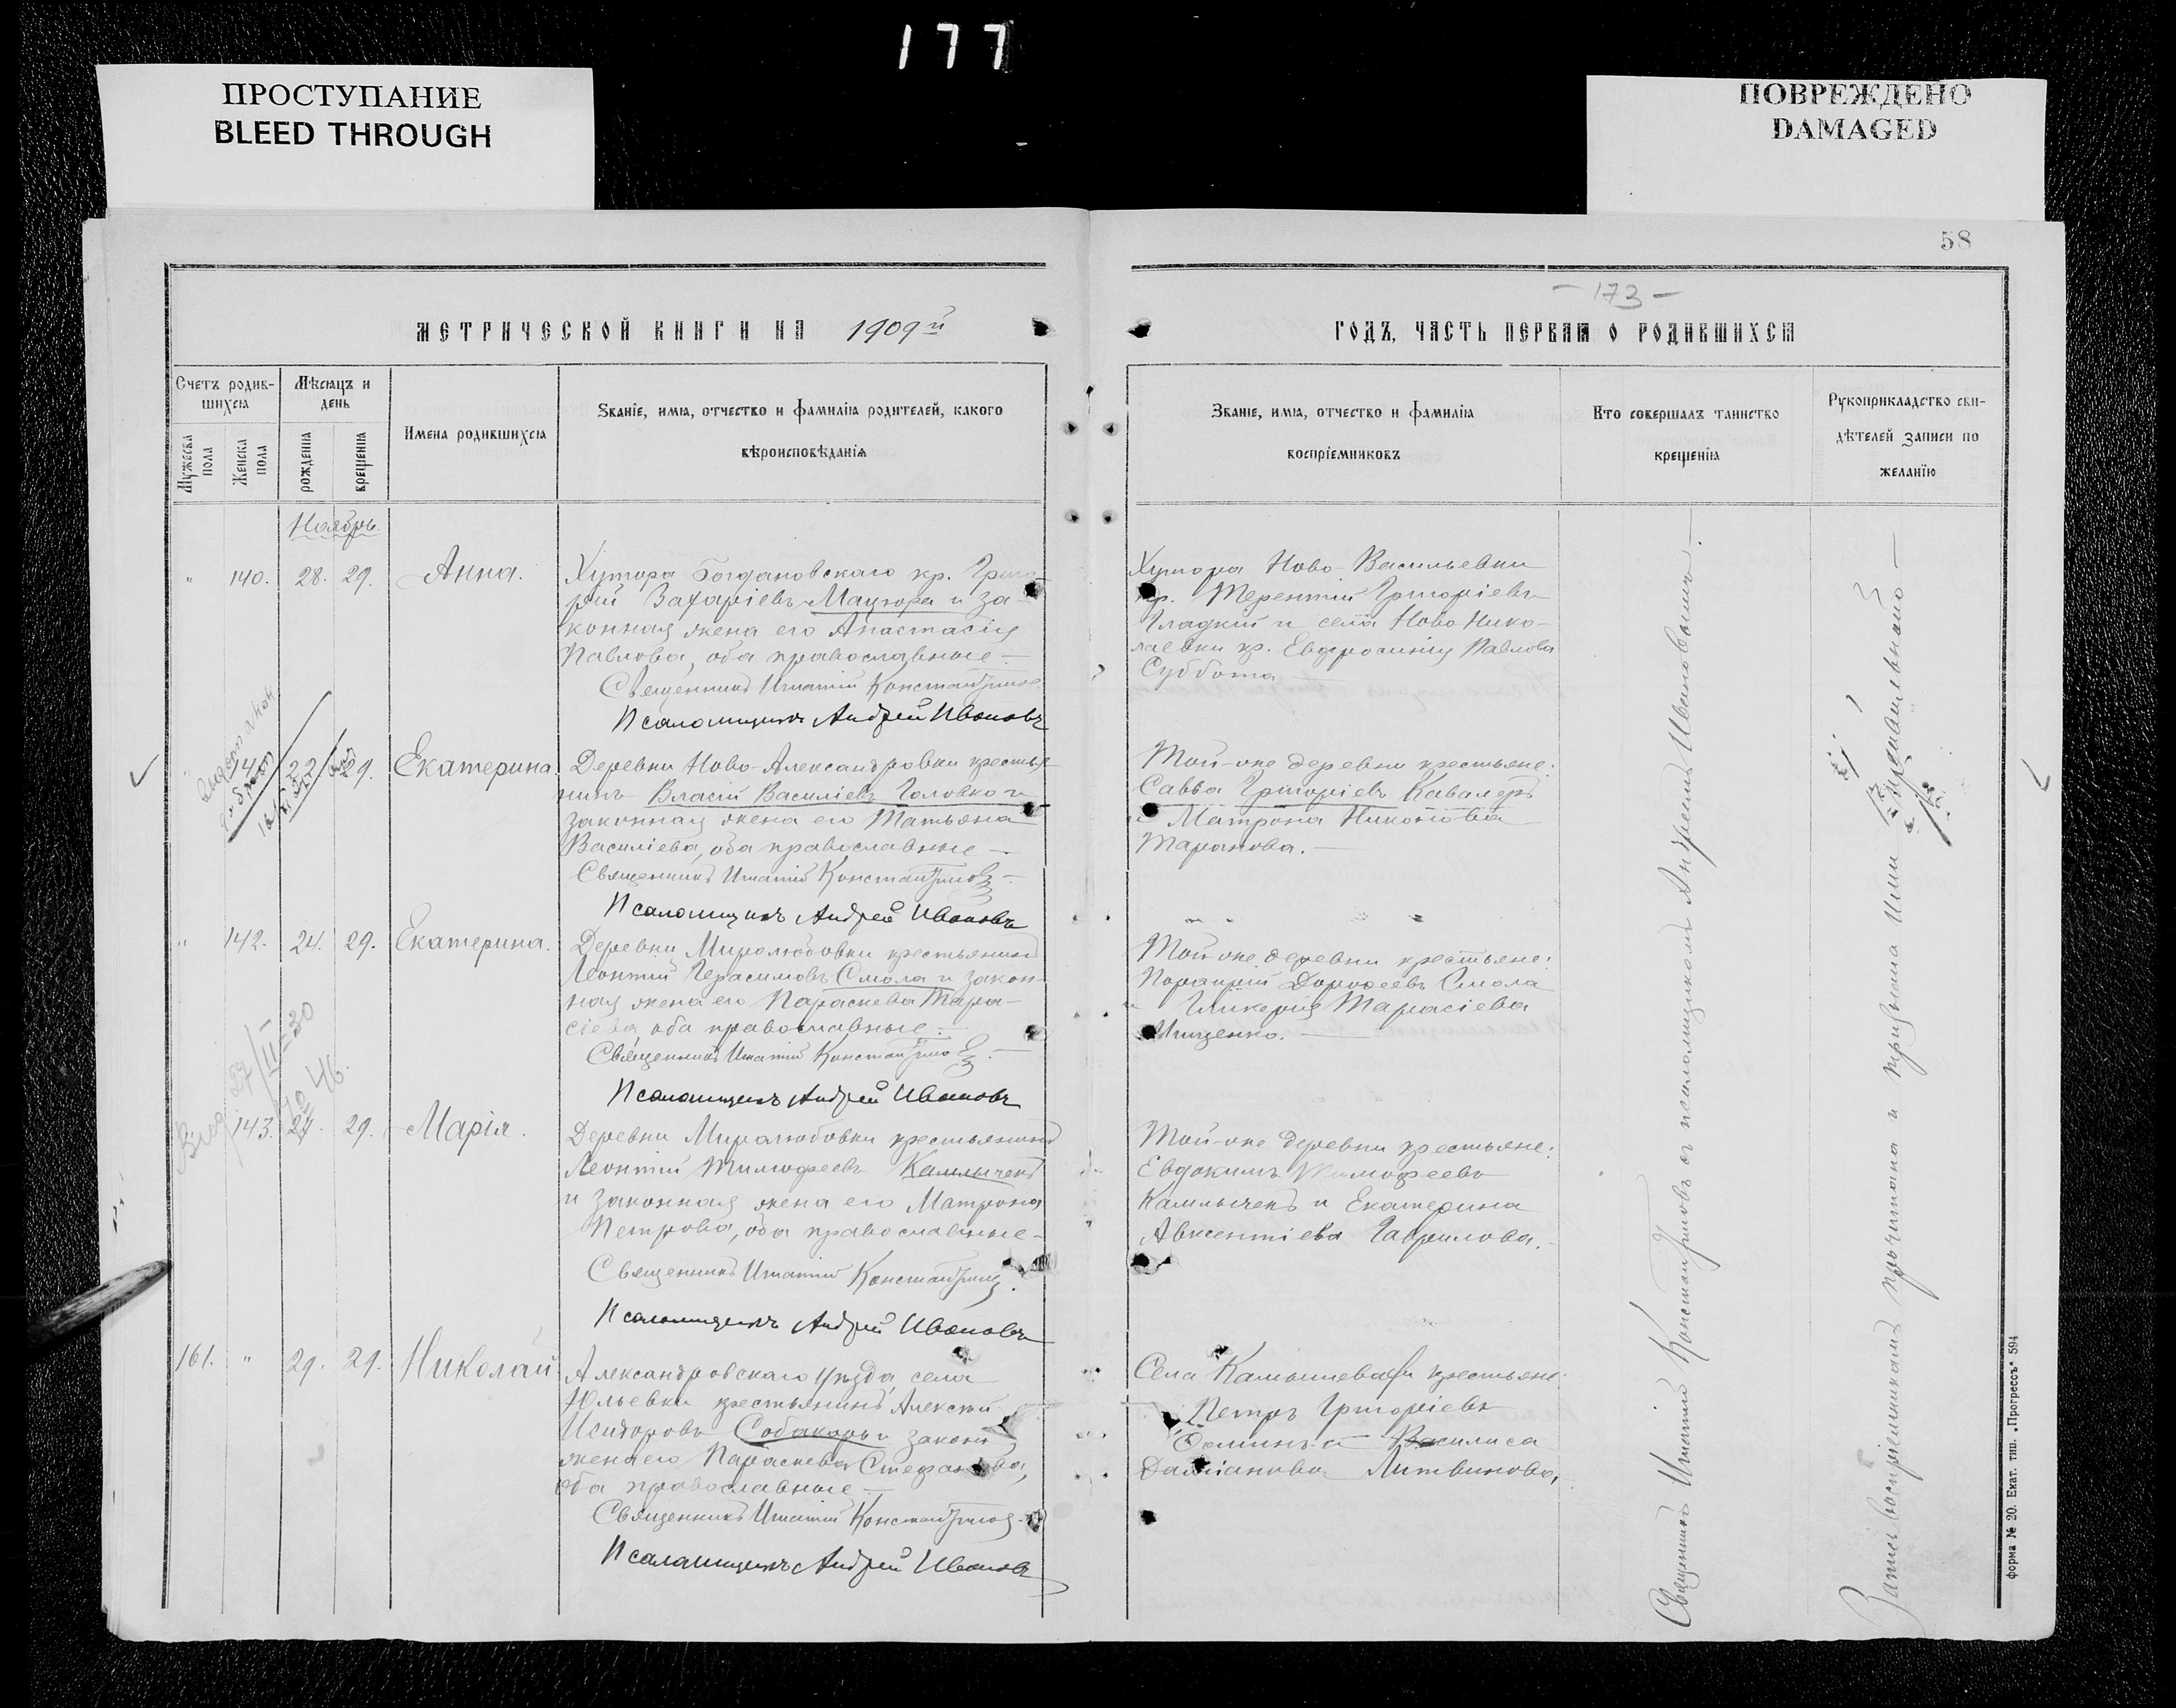 177
ПРОСТУПАНИЕ
BLEED THROUGH
ПОВРЕЖДЕНО
DAMAGED
58
— 173 —
МЕТРИЧЕСКОЙ КНИГИ НА 1909й
ГОДЪ, ЧАСТЬ ПЕРВАЯ О РОДИВШИХСЯ
Счетъ родив-
шихся
Мѣсяцъ и
день
Мужеска
пола
Женска
пола
рожденія
крещенія
Имена родившихся
Званіе, имя, отчество и фамилія родителей, какого
вѣроисповѣданія
Званіе, имя, отчество и фамилія
воспріемниковъ
Кто совершалъ таинство
крещенія
Рукоприкладство сви-
дѣтелей записи по
желанію
Ноябрь
" 140. 28. 29. Анна.
Хутора Богдановскаго кр. Григо-
рій Захаріевъ Мацюра и за-
конная жена его Анастасія
Павлова, оба православные —
Священникъ Игнатій
Псаломщикъ Андрей Ивановъ
Хутора Ново-Васильевки
кр. Терентій Григоріевъ
Гладкій и села Ново Нико-
лаевки кр. Евфросинія Павлова
Суббота —
141 22 29. Екатерина.
Деревни Ново-Александровки крестья-
нинъ Власій Василіевъ Головко и
законная жена его Татьяна
Василіева, оба православные —
Священникъ Игнатій
Псаломщикъ Андрей Ивановъ
Той-же деревни крестьяне:
Савва Григоріевъ Кавалеръ
и Матрона Никонова
Таранова. —
" 142. 24. 29. Екатерина.
Деревни Миролюбовки крестьянинъ
Леонтій Герасимовъ Смола и закон-
ная жена его Параскева Тара-
сіева, оба православные. —
Священникъ Игнатій
Псаломщикъ Андрей Ивановъ
Той-же деревни крестьяне:
Порфирій Дороѳеевъ Смола
и Гликерія Тарасіева
Ищенко. —
27/II-30
46.
143. 29. Марія.
Деревни Миролюбовки крестьянинъ
Леонтій Тимоѳеевъ Камлыченъ
и законная жена его Матрона
Петрова, оба православные —
Священникъ Игнатій
Псаломщикъ Андрей Ивановъ
Той-же деревни крестьяне:
Евдокимъ Тимоѳеевъ
Камлыченъ и Екатерина
Авксентіева Гаврилова.
161. " 29. 29. Николай
Александровскаго уѣзда, села
Юльевки крестьянинъ Алексѣй
Исидоровъ Собакарь и законн.
жена его Параскева Стефанова,
оба православные —
Священникъ Игнатій
Псаломщикъ Андрей Ивановъ
Села Камышевахи крестьяне:
Петръ Григоріевъ
Василиса
Даміанова Литвинова,
Священникъ Игнатій съ псаломщикомъ Андреемъ Ивановымъ.
Запись воспріемникамъ прочитана и признана ими правильной —
форма № 20. Екат. тип. „Прогрессъ" 594